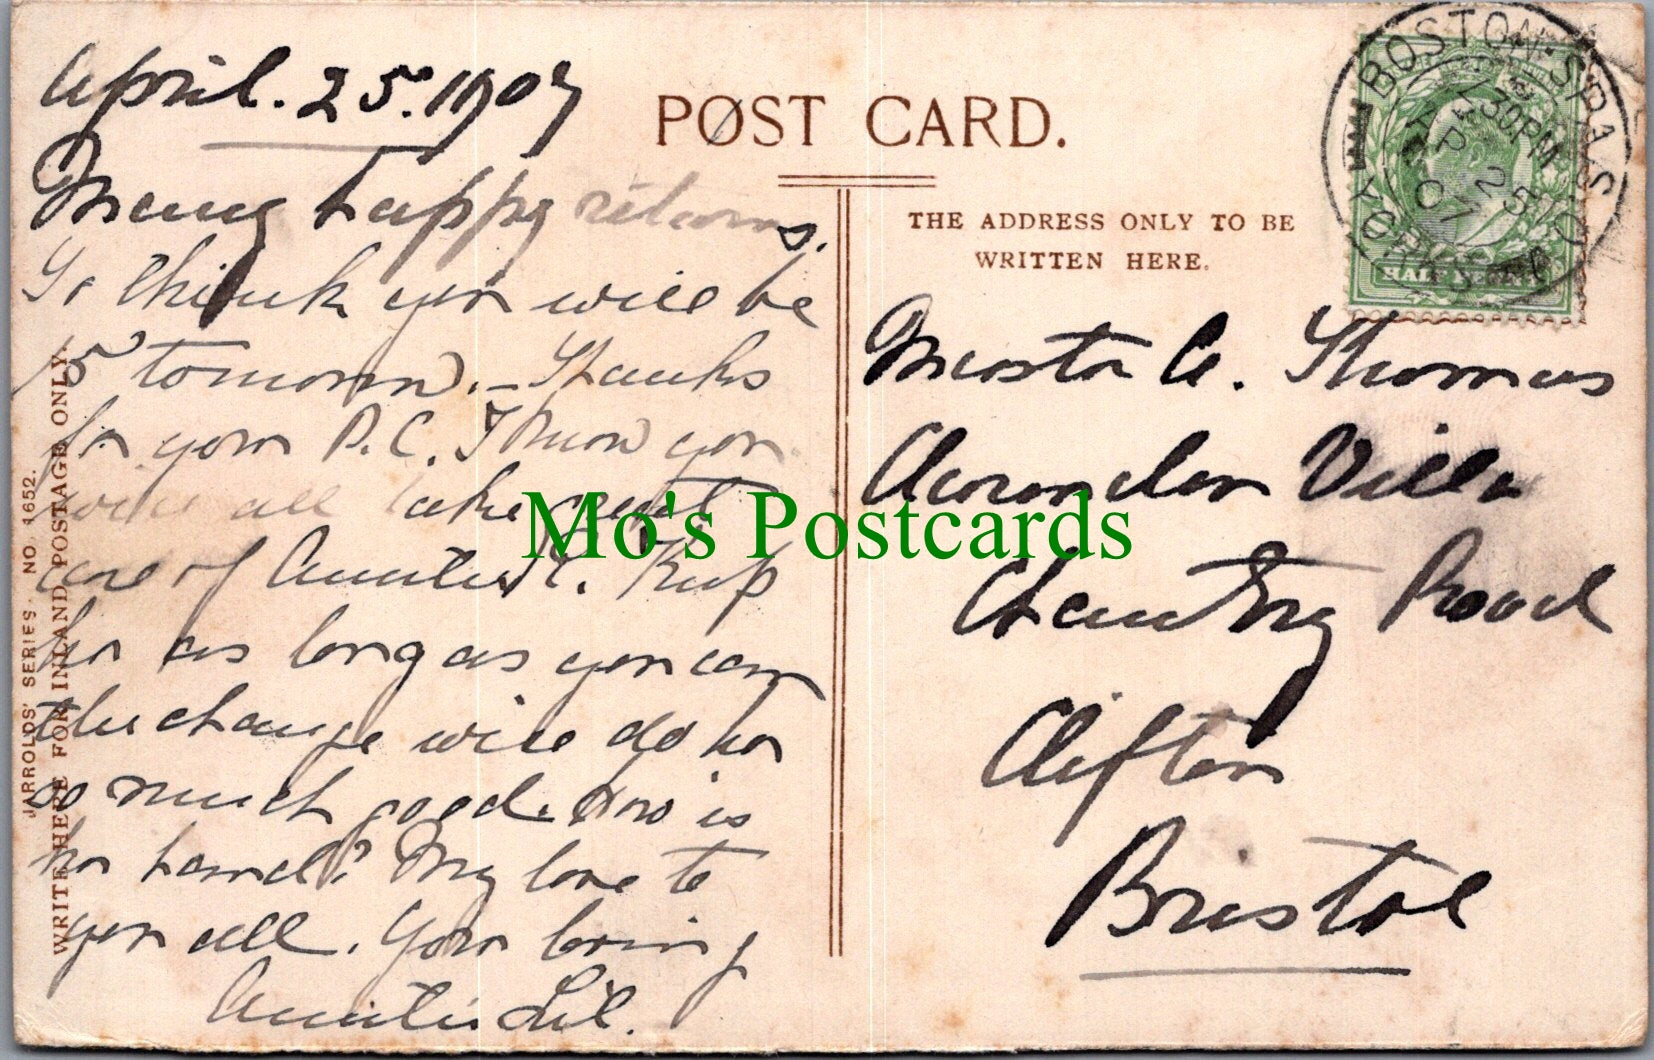 April. 25. 1907
Many happy returns.
To think you will be
15 tomorrow. - Thanks
for your P.C. I know you
will all take great
care of Auntie K. Keep
her as long as you can
the change will do her
so much good. How is
her hand? My love to
you all. Your loving
Auntie Lil.
JARROLDS' SERIES. NO. 1652.
WRITE HERE FOR INLAND POSTAGE ONLY.
POST CARD.
THE ADDRESS ONLY TO BE
WRITTEN HERE.
BOSTON·SPA S.O
YORKS
30 PM
AP 25
07
HALF PENNY
Master A. Thomas
Villa
Chantry Road
Clifton
Bristol
Mo's Postcards